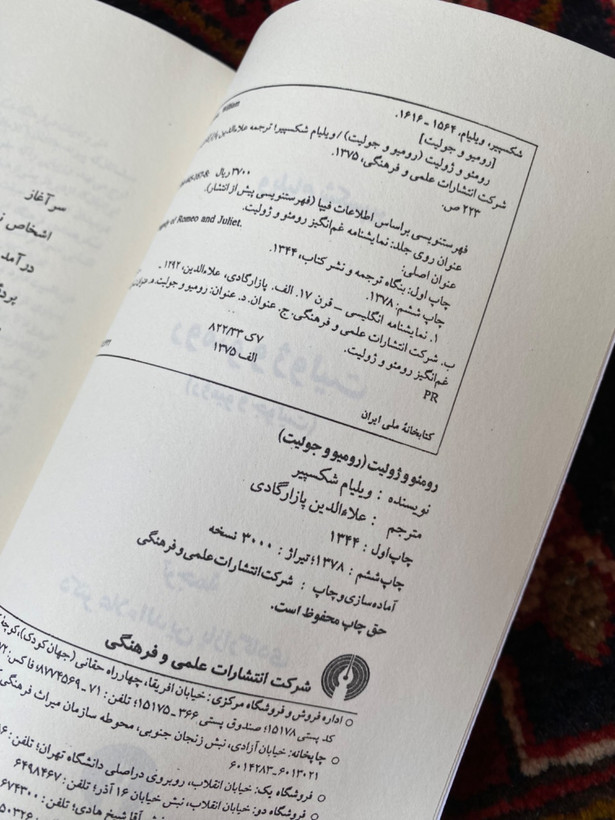 شکسپیر، ویلیام، ۱۵۶۴ ـ ۱۶۱۶.
William
[رومیو و جولیت]
رومئو و ژولیت (رومیو و جولیت) / ویلیام شکسپیر؛ ترجمه علاءالدین
شرکت انتشارات علمی و فرهنگی، ۱۳۷۵.
۲۲۳ ص.
۳۷۰۰ ریال
فهرستنویسی براساس اطلاعات فیپا (فهرستنویسی پیش از انتشار).
عنوان روی جلد: نمایشنامه غم‌انگیز رومئو و ژولیت.
عنوان اصلی: of Romeo and Juliet.
چاپ اول: بنگاه ترجمه و نشر کتاب، ۱۳۴۴.
چاپ ششم: ۱۳۷۸.
۱. نمایشنامه انگلیسی ـ قرن ۱۷. الف. بازارگادی، علاءالدین، ۱۲۹۲ ـ
ب. شرکت انتشارات علمی و فرهنگی. ج. عنوان. د. عنوان: رومیو و جولیت.
غم‌انگیز رومئو و ژولیت.
۸۲۲/۳۳ ۷ک PR
الف ۱۳۷۵
کتابخانهٔ ملی ایران
رومئو و ژولیت (رومیو و جولیت)
نویسنده : ویلیام شکسپیر
مترجم : علاءالدین پازارگادی
چاپ اول : ۱۳۴۴
چاپ ششم : ۱۳۷۸؛ تیراژ : ۳۰۰۰ نسخه
آماده‌سازی و چاپ : شرکت انتشارات علمی و فرهنگی
حق چاپ محفوظ است.
شرکت انتشارات علمی و فرهنگی
○ اداره فروش و فروشگاه مرکزی: خیابان افریقا، چهارراه حقانی (جهان کودک)،
کد پستی ۱۵۱۷۸؛ صندوق پستی ۳۶۶ ـ ۱۵۱۷۵؛ تلفن: ۷۱ ـ ۸۷۷۴۵۶۹؛ فاکس:
○ چاپخانه: خیابان آزادی، نبش زنجان جنوبی، محوطه سازمان میراث فرهنگی
۶۰۱۴۲۸۳ ـ ۶۰۱۳۰۲۱
○ فروشگاه یک: خیابان انقلاب، روبروی دراصلی دانشگاه تهران؛ تلفن:
○ فروشگاه دو: خیابان انقلاب، نبش خیابان ۱۶ آذر؛ تلفن: ۶۴۹۸۴۶۷
نبش آقا شیخ هادی؛ تلفن:
سرآغاز
اشخاص
درآمد